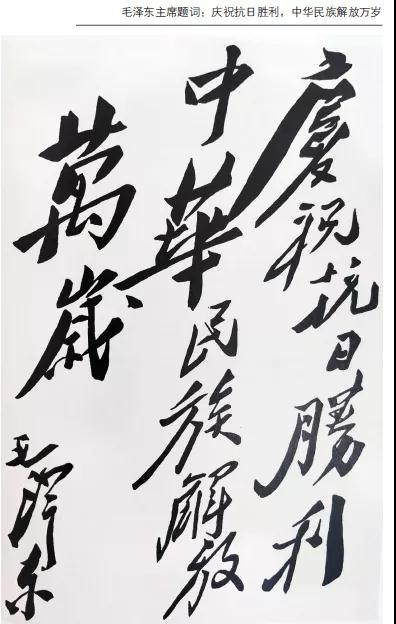 毛泽东主席题词：庆祝抗日胜利，中华民族解放万岁
慶祝抗日勝利
中華民族解放
萬歲
毛澤东